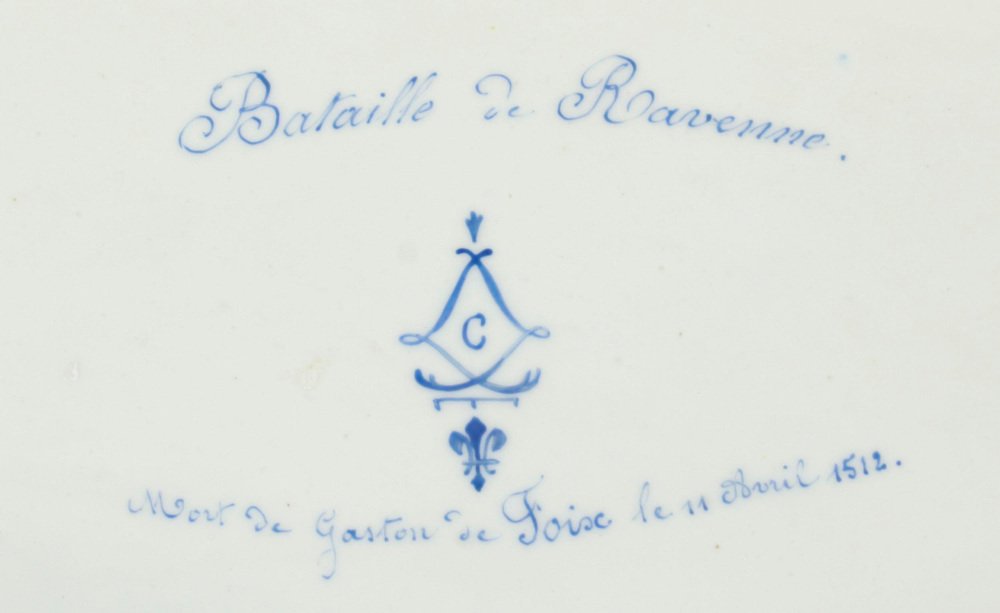 Bataille de Ravenne.
C
Mort de Gaston de Foix le 11 Avril 1512.